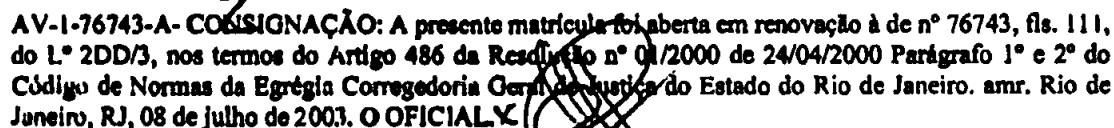 AV-1-76743-A- CONSIGNAÇÃO: A presente matrícula foi aberta em renovação à de nº 76743, fls. 111,
do L° 2DD/3, nos termos do Artigo 486 da Resolução nº 01/2000 de 24/04/2000 Parágrafo 1° e 2° do
Código de Normas da Egrégia Corregedoria Geral de Justiça do Estado do Rio de Janeiro. amr. Rio de
Janeiro, RJ, 08 de julho de 2003. O OFICIAL